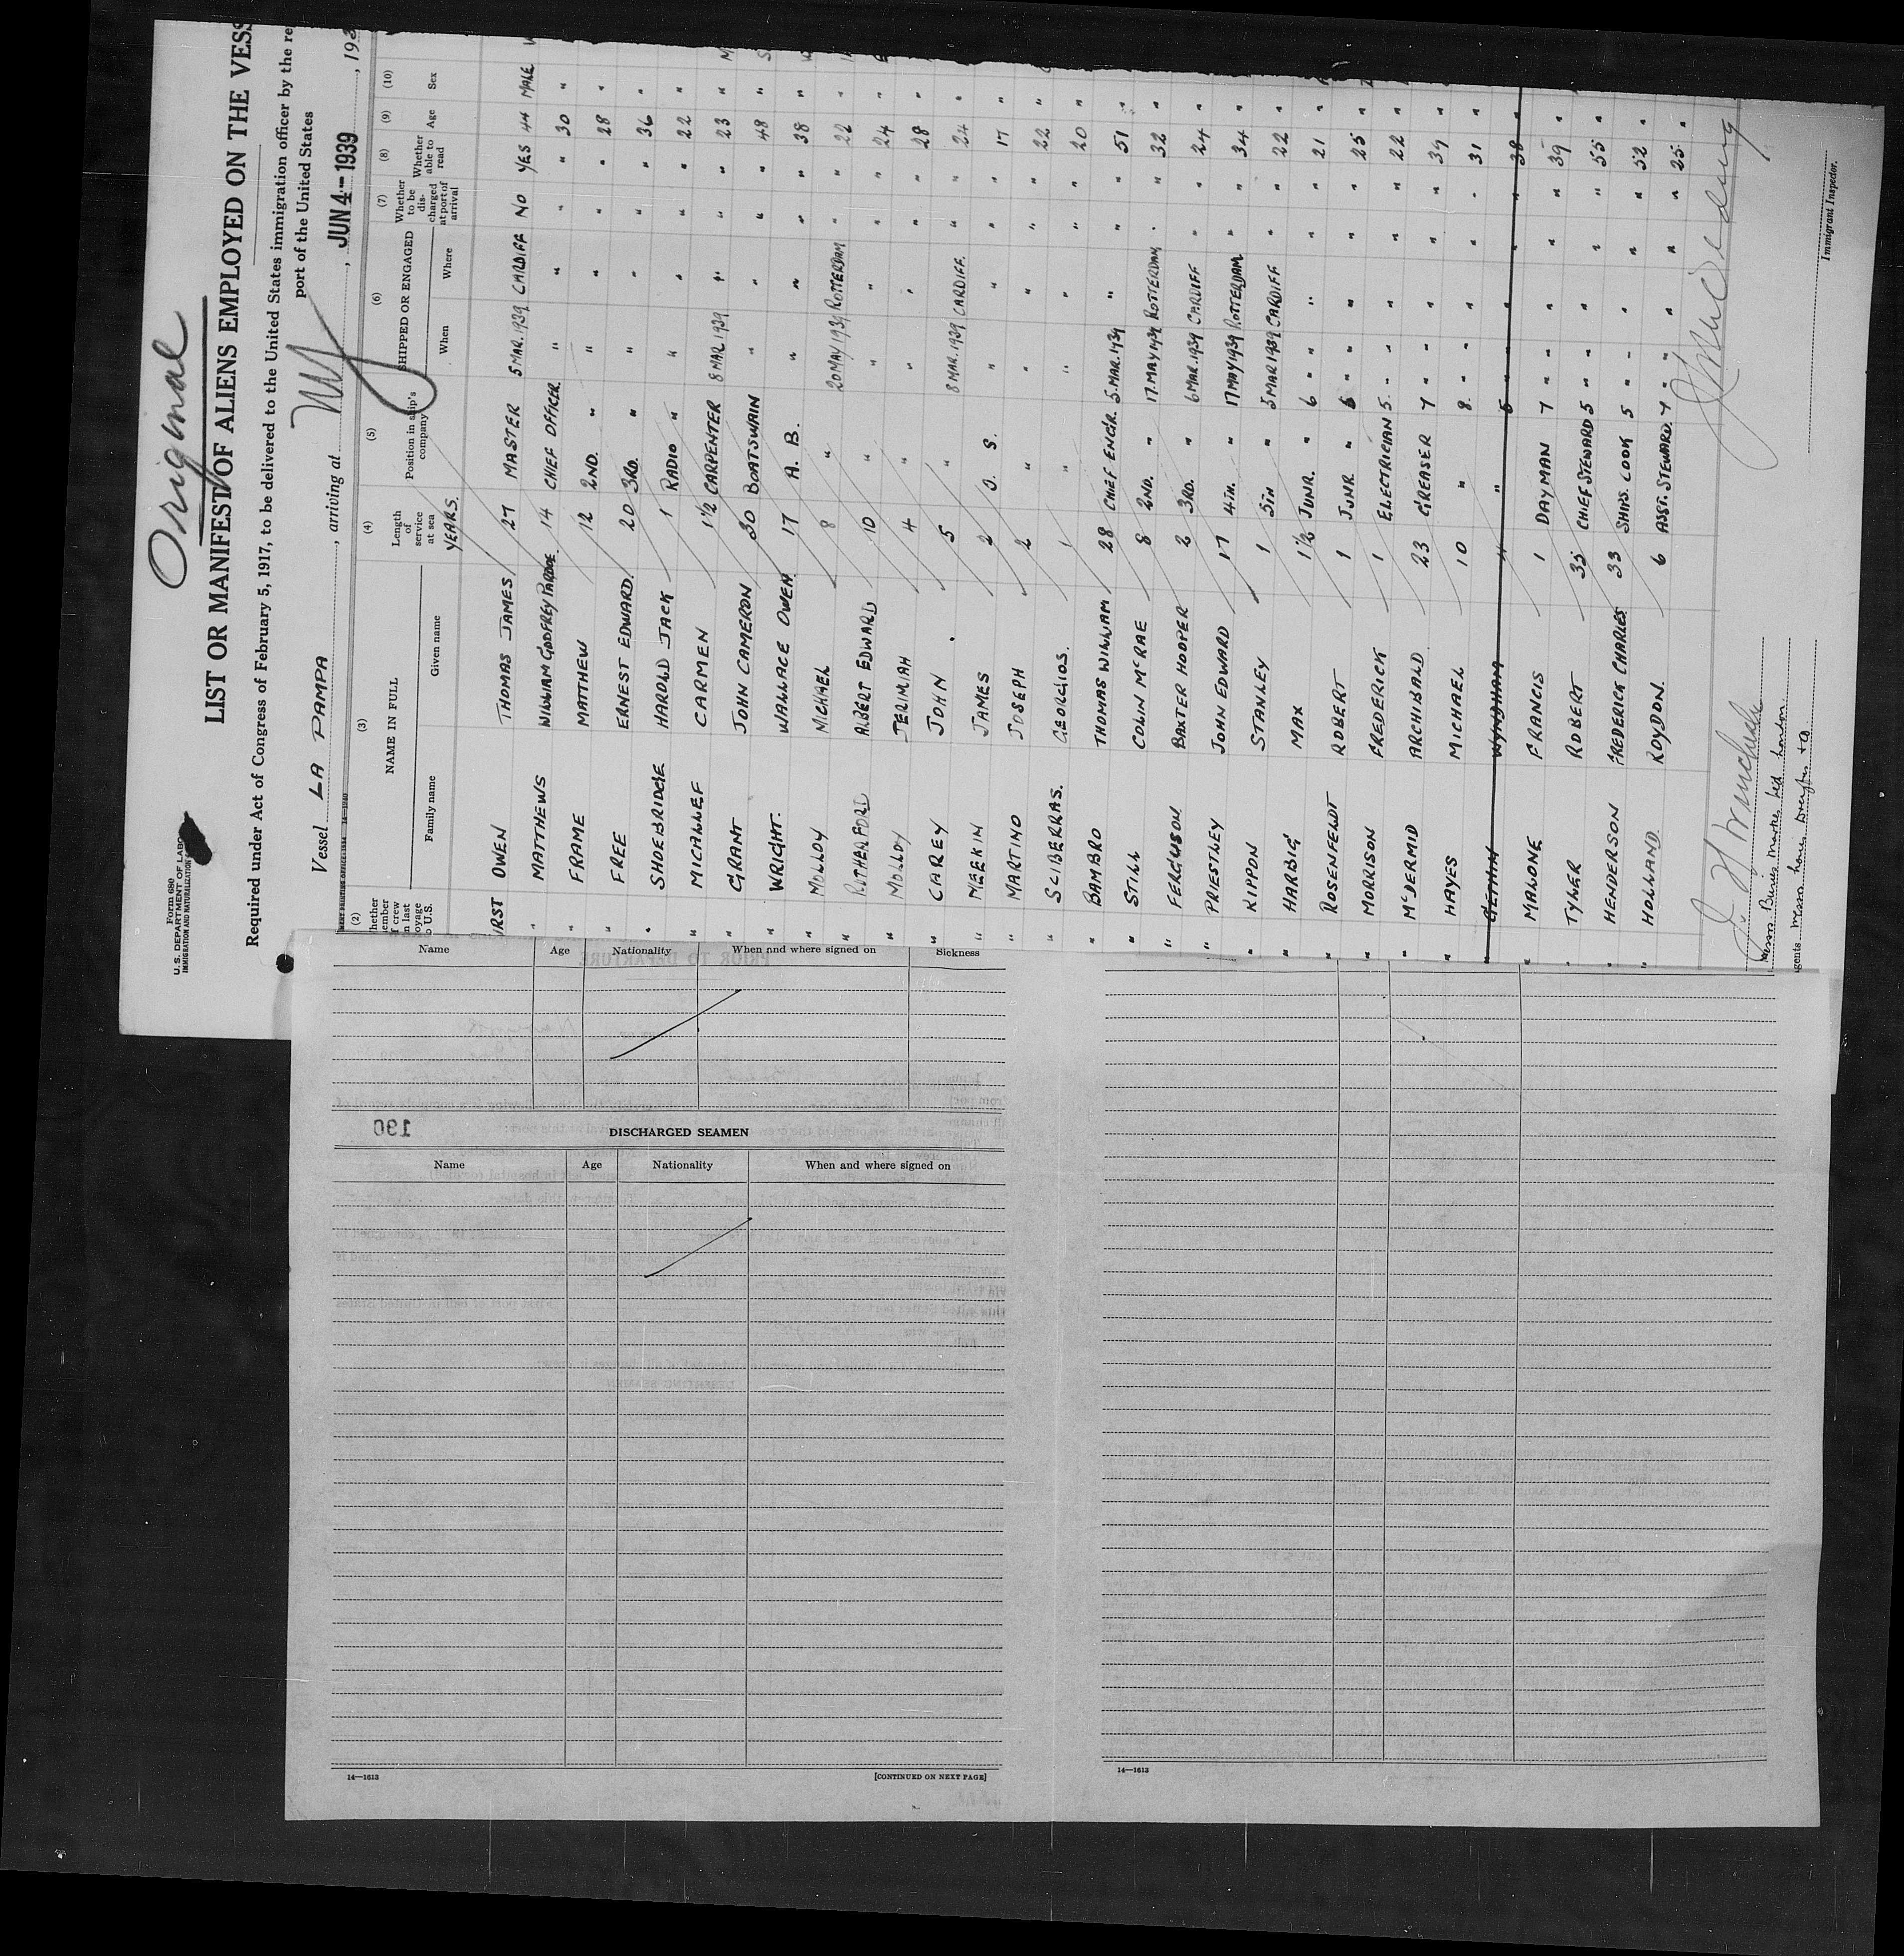 Original
Form 680
U.S. DEPARTMENT OF LABOR
IMMIGRATION AND NATURALIZATION
LIST OR MANIFEST OF ALIENS EMPLOYED ON THE VESS
Required under Act of Congress of February 5, 1917, to be delivered to the United States immigration officer by the re
port of the United States
Vessel LA PAMPA, arriving at , JUN 4 - 1939, 193
(2) (3) (4) (5) (6) (7) (8) (9) (10)
NAME IN FULL Length of service at sea Position in ship's company SHIPPED OR ENGAGED Whether to be discharged at port of arrival Whether able to read Age Sex
Family name Given name When Where
YEARS.
OWEN THOMAS JAMES 27 MASTER 5 MAR. 1939 CARDIFF NO YES 44 MALE
" MATTHEWS WILLIAM GODFREY 14 CHIEF OFFICER " " " " 30 "
" FRAME MATTHEW 12 2ND. " " " " " 28 "
" FREE ERNEST EDWARD. 20 3RD. " " " " " 36 "
" SHOEBRIDGE HAROLD JACK 1 RADIO " " " " " 22 "
" MICALLEF CARMEN 1½ CARPENTER 8 MAR 1939 " " " 23 "
" GRANT JOHN CAMERON 30 BOATSWAIN " " " " 48 "
" WRIGHT. WALLACE OWEN 17 A. B. " " " " 38 "
" MOLLOY MICHAEL 8 " 20 MAY 1939 ROTTERDAM " " 22 "
" RUTHERFORD ALBERT EDWARD 10 " " " " " 24 "
" MOLLOY JERIMIAH 4 " " " " " 28 "
" CAREY JOHN. 5 " 8 MAR. 1939 CARDIFF. " " 24 "
" MEEKIN JAMES 2 O. S. " " " " 17 "
" MARTINO JOSEPH 2 " " " " " 22 "
" SCIBERRAS. GEORGIOS. 1 " " " " " 20 "
" BAMBRO THOMAS WILLIAM 28 CHIEF ENGR. 5. MAR. 1939 " " " 51 "
" STILL COLIN McRAE 8 2ND. " 17. MAY 1939 ROTTERDAM " " 32 "
" FERGUSON BAXTER HOOPER 2 3RD. " 6 MAR. 1939 CARDIFF " " 24 "
" PRIESTLEY JOHN EDWARD 17 4TH. " 17 MAY 1939 ROTTERDAM " " 34 "
" KIPPON STANLEY 1 5TH " 5 MAR 1939 CARDIFF " " 22 "
" HARBIG MAX 1½ JUNR. " 6 " " " " " 21 "
" ROSENFELDT ROBERT 1 JUNR " 6 " " " " " 25 "
" MORRISON FREDERICK 1 ELECTRICIAN 5. " " " " " 22 "
" McDERMID ARCHIBALD 23 GREASER 7 " " " " " 39 "
" HAYES MICHAEL 10 " 8. " " " " " 31 "
" WYNDHAM " 5 " " " " " 38 "
" MALONE FRANCIS 1 DAYMAN 7 " " " " " 39 "
" TYLER ROBERT 35 CHIEF STEWARD 5 " " " " " 55 "
" HENDERSON FREDERICK CHARLES 33 SHIPS COOK 5 " " " " " 52 "
" HOLLAND. ROYDON. 6 ASST. STEWARD. 7 " " " " " 25. "
Immigrant Inspector.
Name Age Nationality When and where signed on Sickness
190
DISCHARGED SEAMEN
Name Age Nationality When and where signed on
14—1613 [CONTINUED ON NEXT PAGE]
14—1613